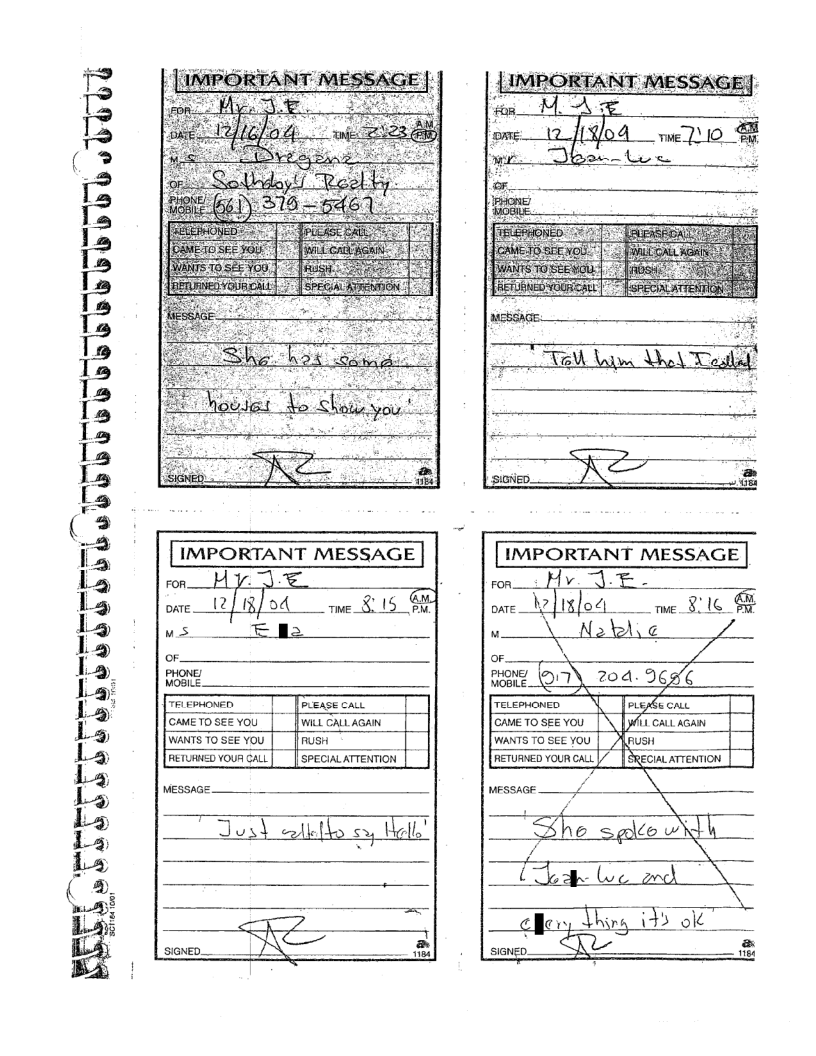 IMPORTANT MESSAGE
FOR Mr. J.E.
DATE 12/16/04 TIME 2:23 A.M. P.M.
M S Dragana
OF Sothdoby's Realty
PHONE/ MOBILE (561) 379-5467
TELEPHONED PLEASE CALL
CAME TO SEE YOU WILL CALL AGAIN
WANTS TO SEE YOU RUSH
RETURNED YOUR CALL SPECIAL ATTENTION
MESSAGE
She has some
houses to show you'
SIGNED
1184
IMPORTANT MESSAGE
FOR M. J.E
DATE 12/18/04 TIME 7:10 A.M. P.M.
M r. Jean-Luc
OF
PHONE/ MOBILE
TELEPHONED PLEASE CALL
CAME TO SEE YOU WILL CALL AGAIN
WANTS TO SEE YOU RUSH
RETURNED YOUR CALL SPECIAL ATTENTION
MESSAGE
'Tell him that I called'
SIGNED
1184
IMPORTANT MESSAGE
FOR Mr. J.E
DATE 12/18/04 TIME 8:15 A.M. P.M.
M S E a
OF
PHONE/ MOBILE
TELEPHONED PLEASE CALL
CAME TO SEE YOU WILL CALL AGAIN
WANTS TO SEE YOU RUSH
RETURNED YOUR CALL SPECIAL ATTENTION
MESSAGE
'Just called to say Hello'
SIGNED
1184
IMPORTANT MESSAGE
FOR Mr. J.E.
DATE 12/18/04 TIME 8:16 A.M. P.M.
M Natalie
OF
PHONE/ MOBILE (917) 204.9686
TELEPHONED PLEASE CALL
CAME TO SEE YOU WILL CALL AGAIN
WANTS TO SEE YOU RUSH
RETURNED YOUR CALL SPECIAL ATTENTION
MESSAGE
'She spoke with
Jean-Luc and
e ery thing it's ok'
SIGNED
1184
SC1184 10/01